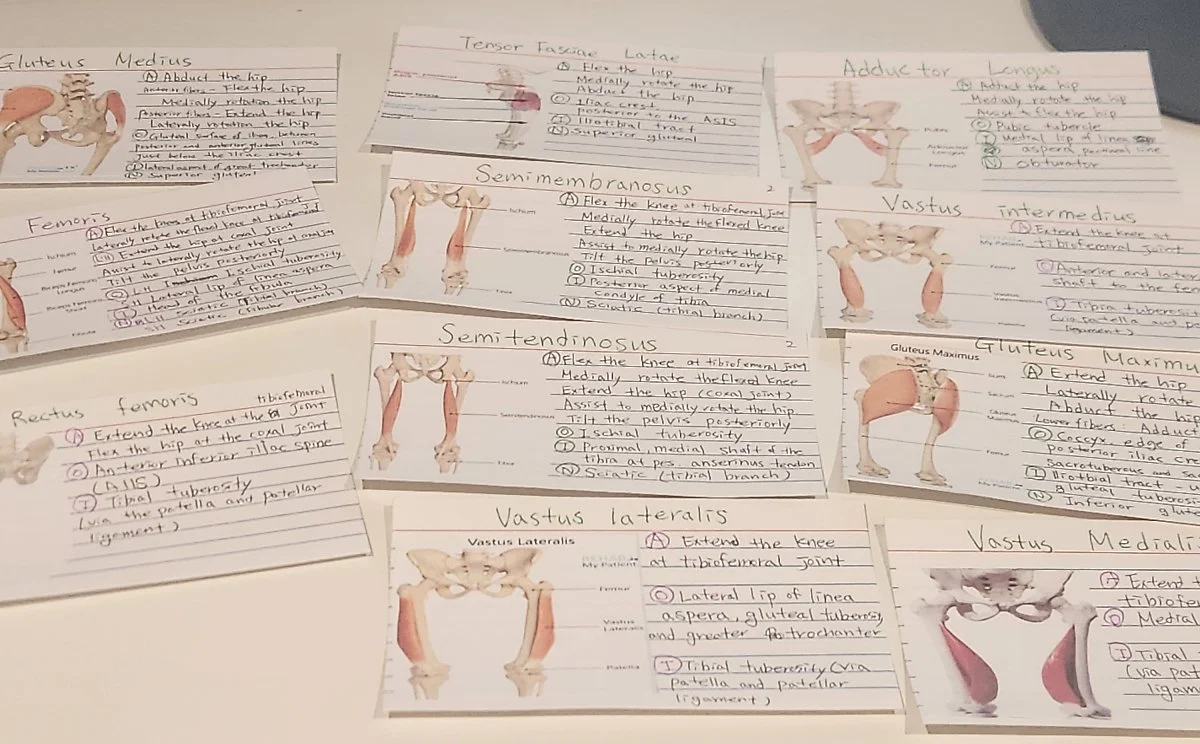 Gluteus Medius
Ⓐ Abduct the hip
Anterior fibers - Flex the hip
Medially rotation the hip
posterior fibers - Extend the hip
Laterally rotation the hip
Ⓞ Gluteal surface of ilium, between
posterior and anterior gluteal lines
just below the iliac crest
Ⓘ lateral aspect of great trochanter
Ⓝ Superior gluteal
Tensor Fasciae Latae
Ⓐ Flex the hip
Medially rotate the hip
Abduct the hip
Ⓞ Iliac crest
posterior to the ASIS
Ⓘ Iliotibial tract
Ⓝ Superior gluteal
Adductor Longus
Ⓐ Adduct the hip
Medially rotate the hip
Assist to flex the hip
Ⓞ Pubic tubercle
Ⓘ Medial lip of linea
aspera
Ⓝ obturator
Pubis
Adductor
Longus
Femur
Femoris
Ⓐ Flex the knee at tibiofemoral joint
laterally rotate the flexed knee at tibiofemoral
(LH) Extend the hip at coxal joint
Assist to laterally rotate the hip
Tilt the pelvis posteriorly
Ⓞ LH Ischial tuberosity
SH Lateral lip of linea aspera
Ⓘ Head of the fibula
Ⓝ LH sciatic (tibial branch)
SH Sciatic
Ischium
Femur
Biceps Femoris
Long
Biceps Femoris
Short
Fibula
Semimembranosus
2
Ⓐ Flex the knee at tibiofemoral joint
Medially rotate the flexed knee
Extend the hip
Assist to medially rotate the hip
Tilt the pelvis posteriorly
Ⓞ Ischial tuberosity
Ⓘ Posterior aspect of medial
condyle of tibia
Ⓝ Sciatic (tibial branch)
Ischium
Semimembranosus
Tibia
Vastus intermedius
Ⓐ Extend the knee at
tibiofemoral joint
Ⓞ Anterior and late
shaft to the fe
Ⓘ Tibia tuberosi
(via patella and p
ligament)
My Patient
Femur
Semitendinosus
2
Ⓐ Flex the knee at tibiofemoral joint
Medially rotate the flexed knee
Extend the hip (coxal joint)
Assist to medially rotate the hip
Tilt the pelvis posteriorly
Ⓞ Ischial tuberosity
Ⓘ Proximal, medial shaft of the
tibia at pes. anserinus tendon
Ⓝ Sciatic (tibial branch)
Ischium
Semitendinosus
Tibia
Gluteus Maximus
Gluteus Maximu
Ⓐ Extend the hip
Laterally rotate
Abduct the hip
Lower fibers: Adduct
Ⓞ Coccyx, edge of
posterior iliac cre
Sacrotuberous and s
Ⓘ Iliotibial tract
gluteal tuberosi
Ⓝ Inferior glute
Ilium
Sacrum
Gluteus
Maximus
Femur
Rectus femoris
tibiofemoral
Ⓐ Extend the knee at the joint
Flex the hip at the coxal joint
Ⓞ Anterior inferior iliac spine
(AIIS)
Ⓘ Tibial tuberosity
(via the patella and patellar
ligament)
Vastus lateralis
Vastus Lateralis
Ⓐ Extend the knee
at tibiofemoral joint
Ⓞ Lateral lip of linea
aspera, gluteal tuberosity
and greater trochanter
Ⓘ Tibial tuberosity (via
patella and patellar
ligament)
REHAB
My Patient
Femur
Vastus
Lateralis
Patella
Vastus Medialis
Ⓐ Extend t
tibiofe
Ⓞ Medial
Ⓘ Tibial
(via pat
ligam